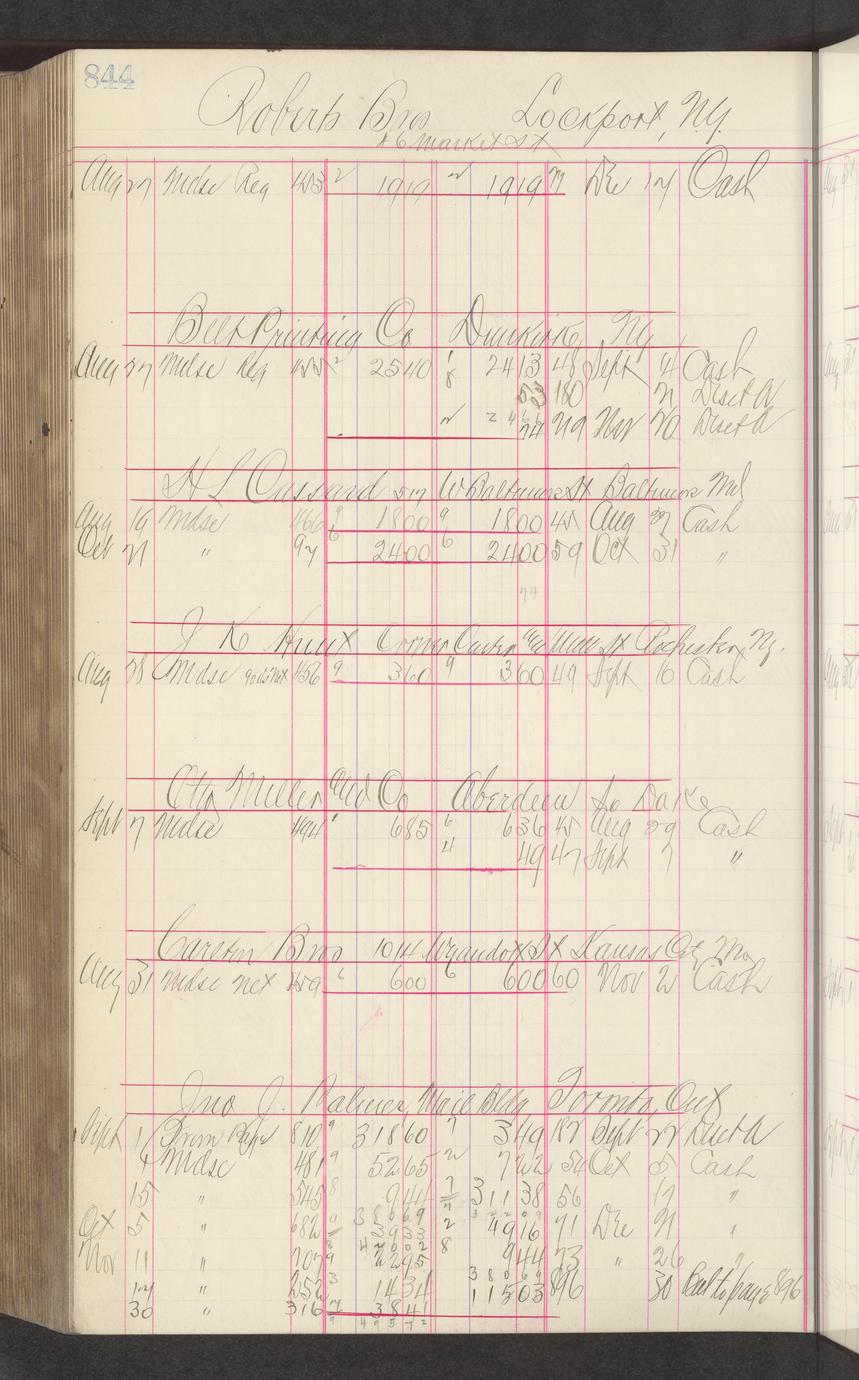 844
Roberts Bros Lockport, N.Y.
6 Market St
Aug 27 Mdse Reg 453 2 1919 2 1919 77 Dec 17 Cash
Belt Printing Co Dunkirk, NY
Aug 27 Mdse Reg 455 2 2540 1 2413 48 Sept 4 Cash
8 53 180 21 Disct A
2 2466 74 219 Nov 20 Disct A
H L Cussard 517 W Baltimore St Baltimore Md
Aug 19 Mdse 466 9 1800 9 1800 45 Aug 27 Cash
Oct 21 " 97 6 2400 6 2400 59 Oct 31 "
74
J K Corner and Mill St Rochester, N.Y.
Aug 28 Mdse Net 456 9 360 9 360 49 Sept 16 Cash
Otto Miller and Co Aberdeen So Dak
Sept 7 Mdse 494 1 685 6 636 45 Aug 29 Cash
11 49 47 Sept 7 "
Carsten Bros 1014 Wyandott St Kansas City Mo
Aug 31 Mdse Net 459 6 600 6 600 60 Nov 2 Cash
Jno J. Palmer, Mail Bldg Toronto, Ont
Sept 1 From Page 810 9 31860 7 349 187 Sept 22 Disct A
4 Mdse 481 9 5265 2 722 54 Oct 5 Cash
15 " 545 8 944 7 31138 56 17 "
Oct 5 " 682 9 3933 2 4916 71 Dec 21 "
Nov 11 " 707 9 2295 8 944 73 " 26 "
17 " 252 3 1434 38069 11503 896 30 Bal to page 896
30 " 316 7 3841
49572